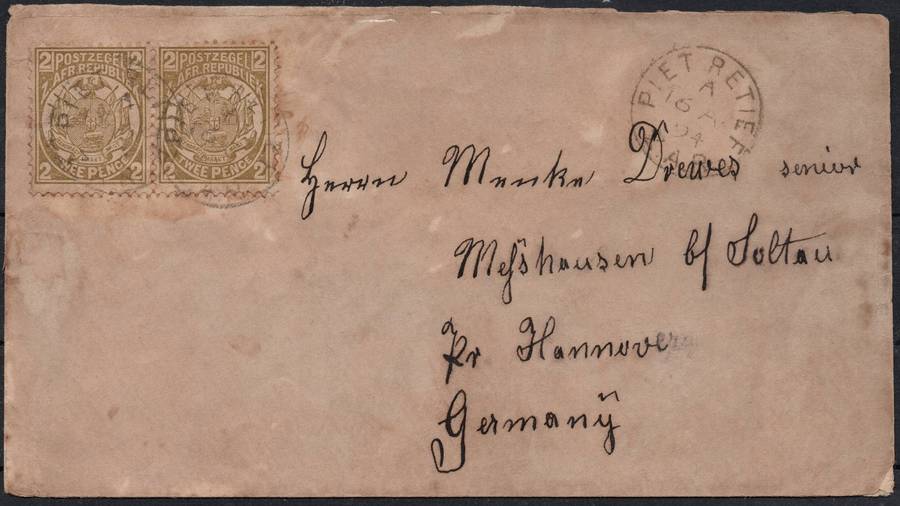 2 POSTZEGEL 2
Z. AFR. REPUBLIEK
2 TWEE PENCE 2
2 POSTZEGEL 2
Z. AFR. REPUBLIEK
2 TWEE PENCE 2
PIET RETIEF
A
16 A
94
Z.A.R.
Herrn Menke Drewes senior
b/ Soltau
Pr Hannover
Germanÿ